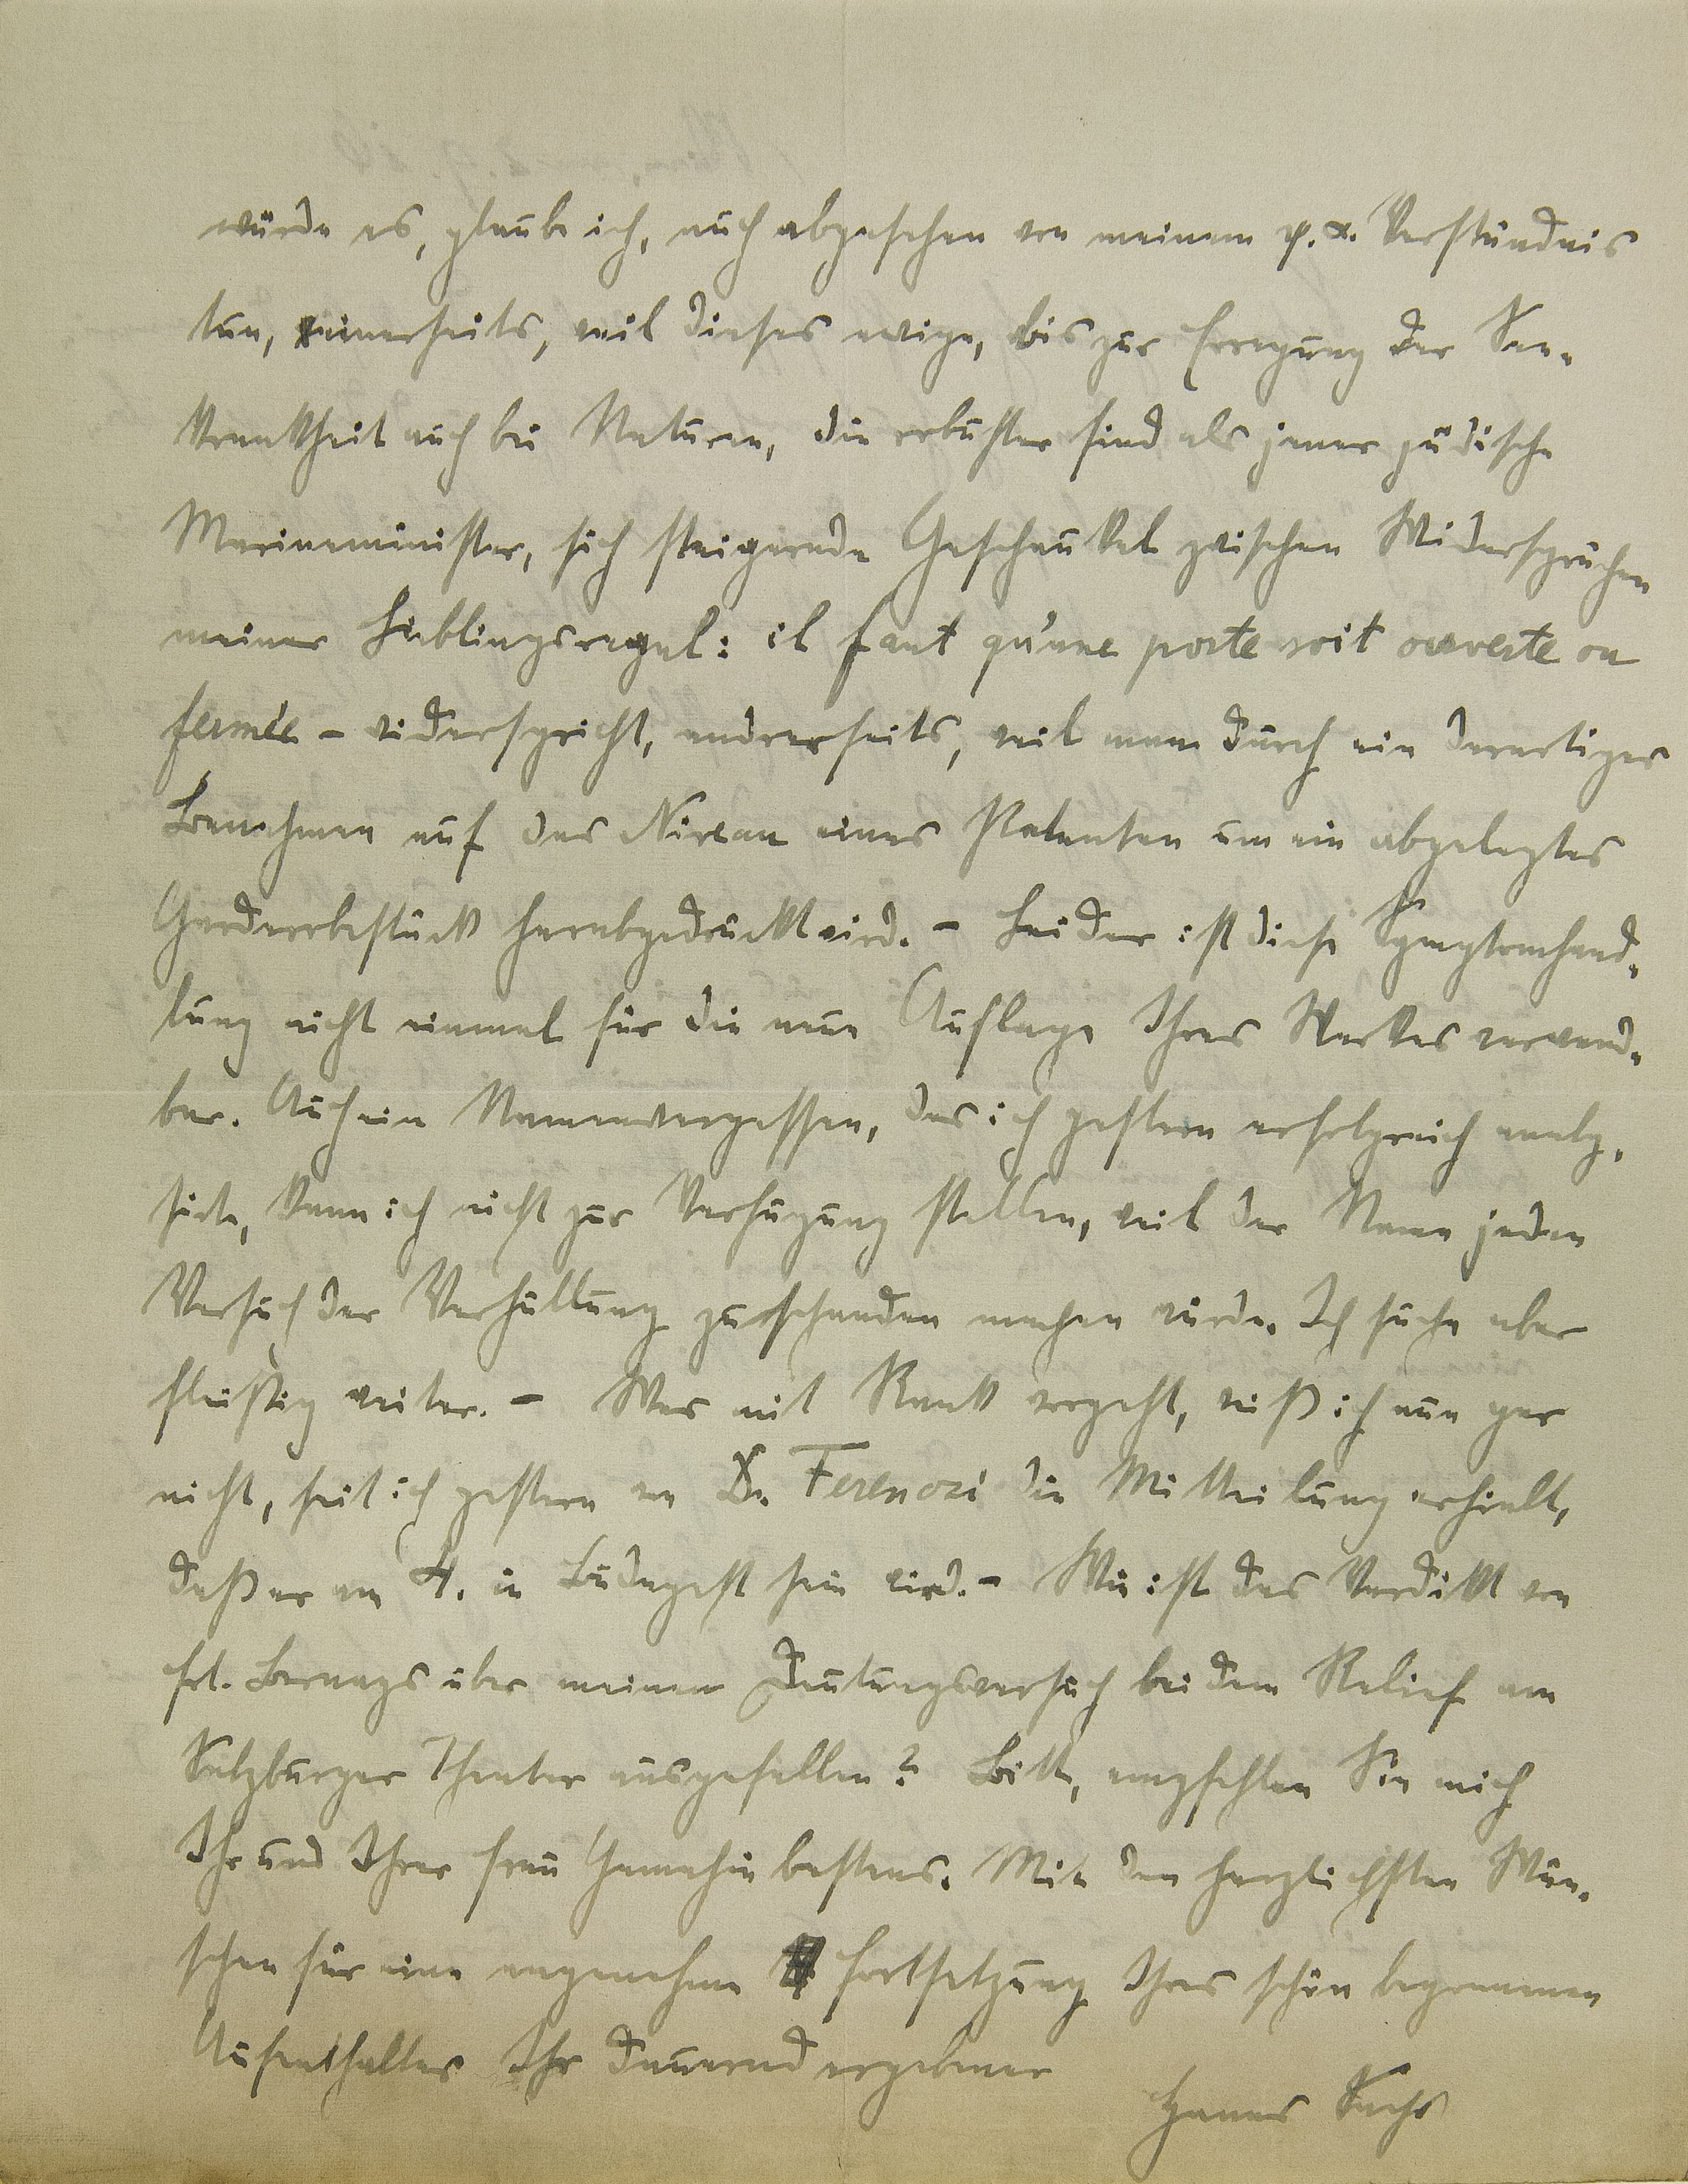 würde es, glaube ich, auch abgesehen von meinem ψ.α. Verständnis
tun, einerseits, weil dieses ewige, bis zur Erregung der See-
krankheit auch bei Naturen, die robuster sind als jener jüdische
Marineminister, sich steigernde Geschaukel zwischen Widersprüchen
meiner Lieblingsregel: il faut qu'une porte soit ouverte ou
fermée – widerspricht, andrerseits, weil man durch ein derartiges
Benehmen auf das Niveau eines Petenten um ein abgelegtes
Garderobestück herabgedrückt wird. – Leider ist diese Symptomhand-
lung nicht einmal für die neue Auflage Ihres Werkes verwend-
bar. Auch ein Namenvergessen, das ich gestern erfolgreich analy-
sirte, kann ich nicht zur Verfügung stellen, weil der Name jeden
Versuch der Verhüllung zuschanden machen würde. Ich suche aber
fleißig weiter. – Was mit Rank vorgeht, weiß ich nun gar
nicht, seit ich gestern von Dr. Ferenczi die Mitteilung erhielt,
daß er am 4. in Budapest sein wird. – Wie ist das Verdikt von
Frl. Bernays über meinen Deutungsversuch bei dem Relief am
Salzburger Theater ausgefallen? Bitte, empfehlen Sie mich
Ihr und Ihrer Frau Gemahin bestens. Mit den herzlichsten Wün-
schen für eine angenehme Fortsetzung Ihres schön begonnenen
Aufenthaltes Ihr dauernd ergebener
Hanns Sachs